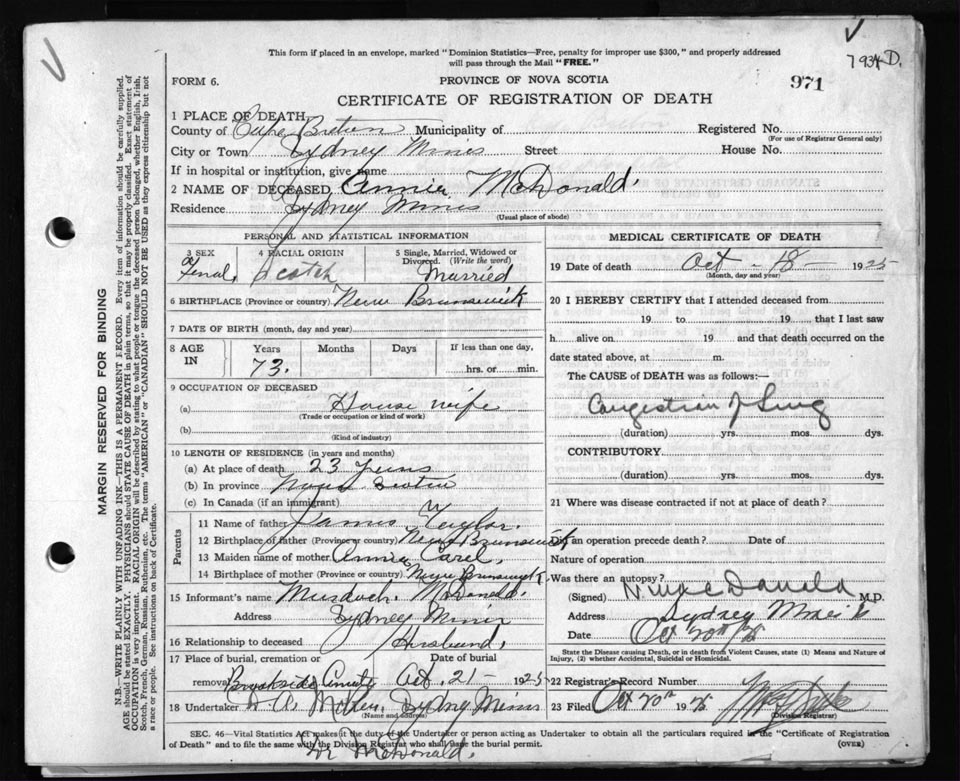 This form if placed in an envelope, marked "Dominion Statistics—Free, penalty for improper use $300," and properly addressed
will pass through the Mail "FREE."
7934 D.
FORM 6.
PROVINCE OF NOVA SCOTIA
971
CERTIFICATE OF REGISTRATION OF DEATH
1 PLACE OF DEATH
County of Cape Breton Municipality of Registered No.
(For use of Registrar General only)
City or Town Sydney Mines Street House No.
If in hospital or institution, give name
2 NAME OF DECEASED Annie McDonald.
Residence Sydney Mines
(Usual place of abode)
PERSONAL AND STATISTICAL INFORMATION
3 SEX
Femal.
4 RACIAL ORIGIN
Scotch
5 Single, Married, Widowed or
Divorced. (Write the word)
Married
6 BIRTHPLACE (Province or country) New Brunswick
7 DATE OF BIRTH (month, day and year)
8 AGE IN
Years Months Days If less than one day,
73. hrs. or min.
9 OCCUPATION OF DECEASED
(a) House wife
(Trade or occupation or kind of work)
(b)
(Kind of industry)
10 LENGTH OF RESIDENCE (in years and months)
(a) At place of death 23 years
(b) In province Nova Scotia
(c) In Canada (if an immigrant)
Parents
11 Name of father James Taylor.
12 Birthplace of father (Province or country) New Brunswick
13 Maiden name of mother Annie
14 Birthplace of mother (Province or country) New Brunswick
15 Informant's name Murdoch McDonald.
Address Sydney Mines
16 Relationship to deceased Husband.
17 Place of burial, cremation or Date of burial
removal Brookside Oct. 21 - 1925
18 Undertaker Sydney Mines
(Name and address)
MEDICAL CERTIFICATE OF DEATH
19 Date of death Oct - 18 - 1925
(Month, day and year)
20 I HEREBY CERTIFY that I attended deceased from
19 to 19 that I last saw
h alive on 19 and that death occurred on the
date stated above, at m.
The CAUSE of DEATH was as follows:—
Congestion of Lung
(duration) yrs. mos. dys.
CONTRIBUTORY
(duration) yrs. mos. dys.
21 Where was disease contracted if not at place of death?
Did an operation precede death? Date of
Nature of operation
Was there an autopsy?
(Signed) M.D.
Address Sydney Mines
Date Oct 20th
State the Disease causing Death, or in death from Violent Causes, state (1) Means and Nature of
Injury, (2) whether Accidental, Suicidal or Homicidal.
22 Registrar's Record Number
23 Filed Oct 20th 192
(Division Registrar)
SEC. 46—Vital Statistics Act makes it the duty of the Undertaker or person acting as Undertaker to obtain all the particulars required in the "Certificate of Registration
of Death" and to file the same with the Division Registrar who shall issue the burial permit.
(OVER)
Dr McDonald.
MARGIN RESERVED FOR BINDING
N.B.—WRITE PLAINLY WITH UNFADING INK—THIS IS A PERMANENT RECORD. Every item of information should be carefully supplied.
AGE should be stated EXACTLY. PHYSICIANS should STATE CAUSE OF DEATH in plain terms, so that it may be properly classified. Exact statement of
OCCUPATION is very important. RACIAL ORIGIN will be described by stating to what people or tongue the deceased person belonged, whether English, Irish,
Scotch, French, German, Russian, Ruthenian, etc. The terms "AMERICAN" or "CANADIAN" SHOULD NOT BE USED as they express citizenship but not
a race or people. See instructions on back of Certificate.